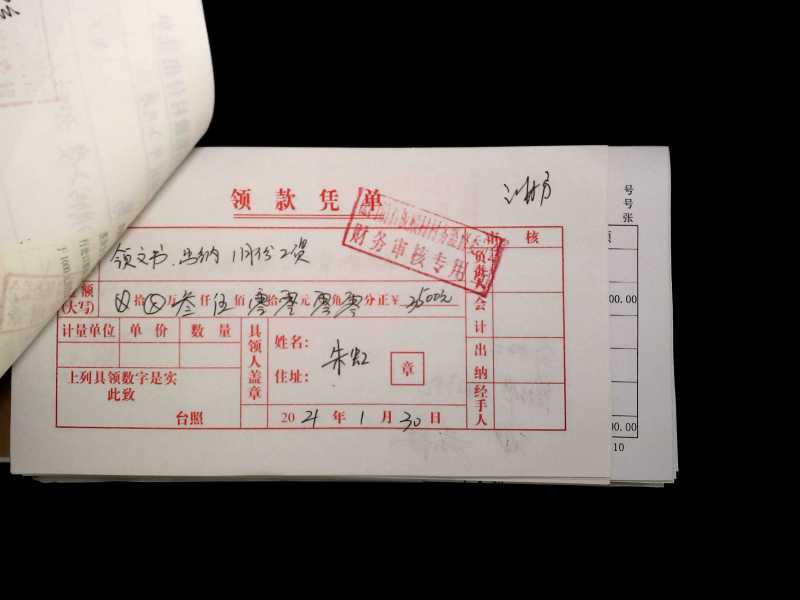 领款凭单
审核
领文书、出纳1月份工资
额
(大写) ⊗拾⊗万叁仟伍佰零拾零元零角零分正¥3500元
计量单位 单价 数量
具领人盖章
姓名: 朱虹
住址:
章
上列具领数字是实
此致
台照
2021年1月30日
负责人
会计
出纳
经手人
财务审核专用章
号
号
张
00.00
00.00
10